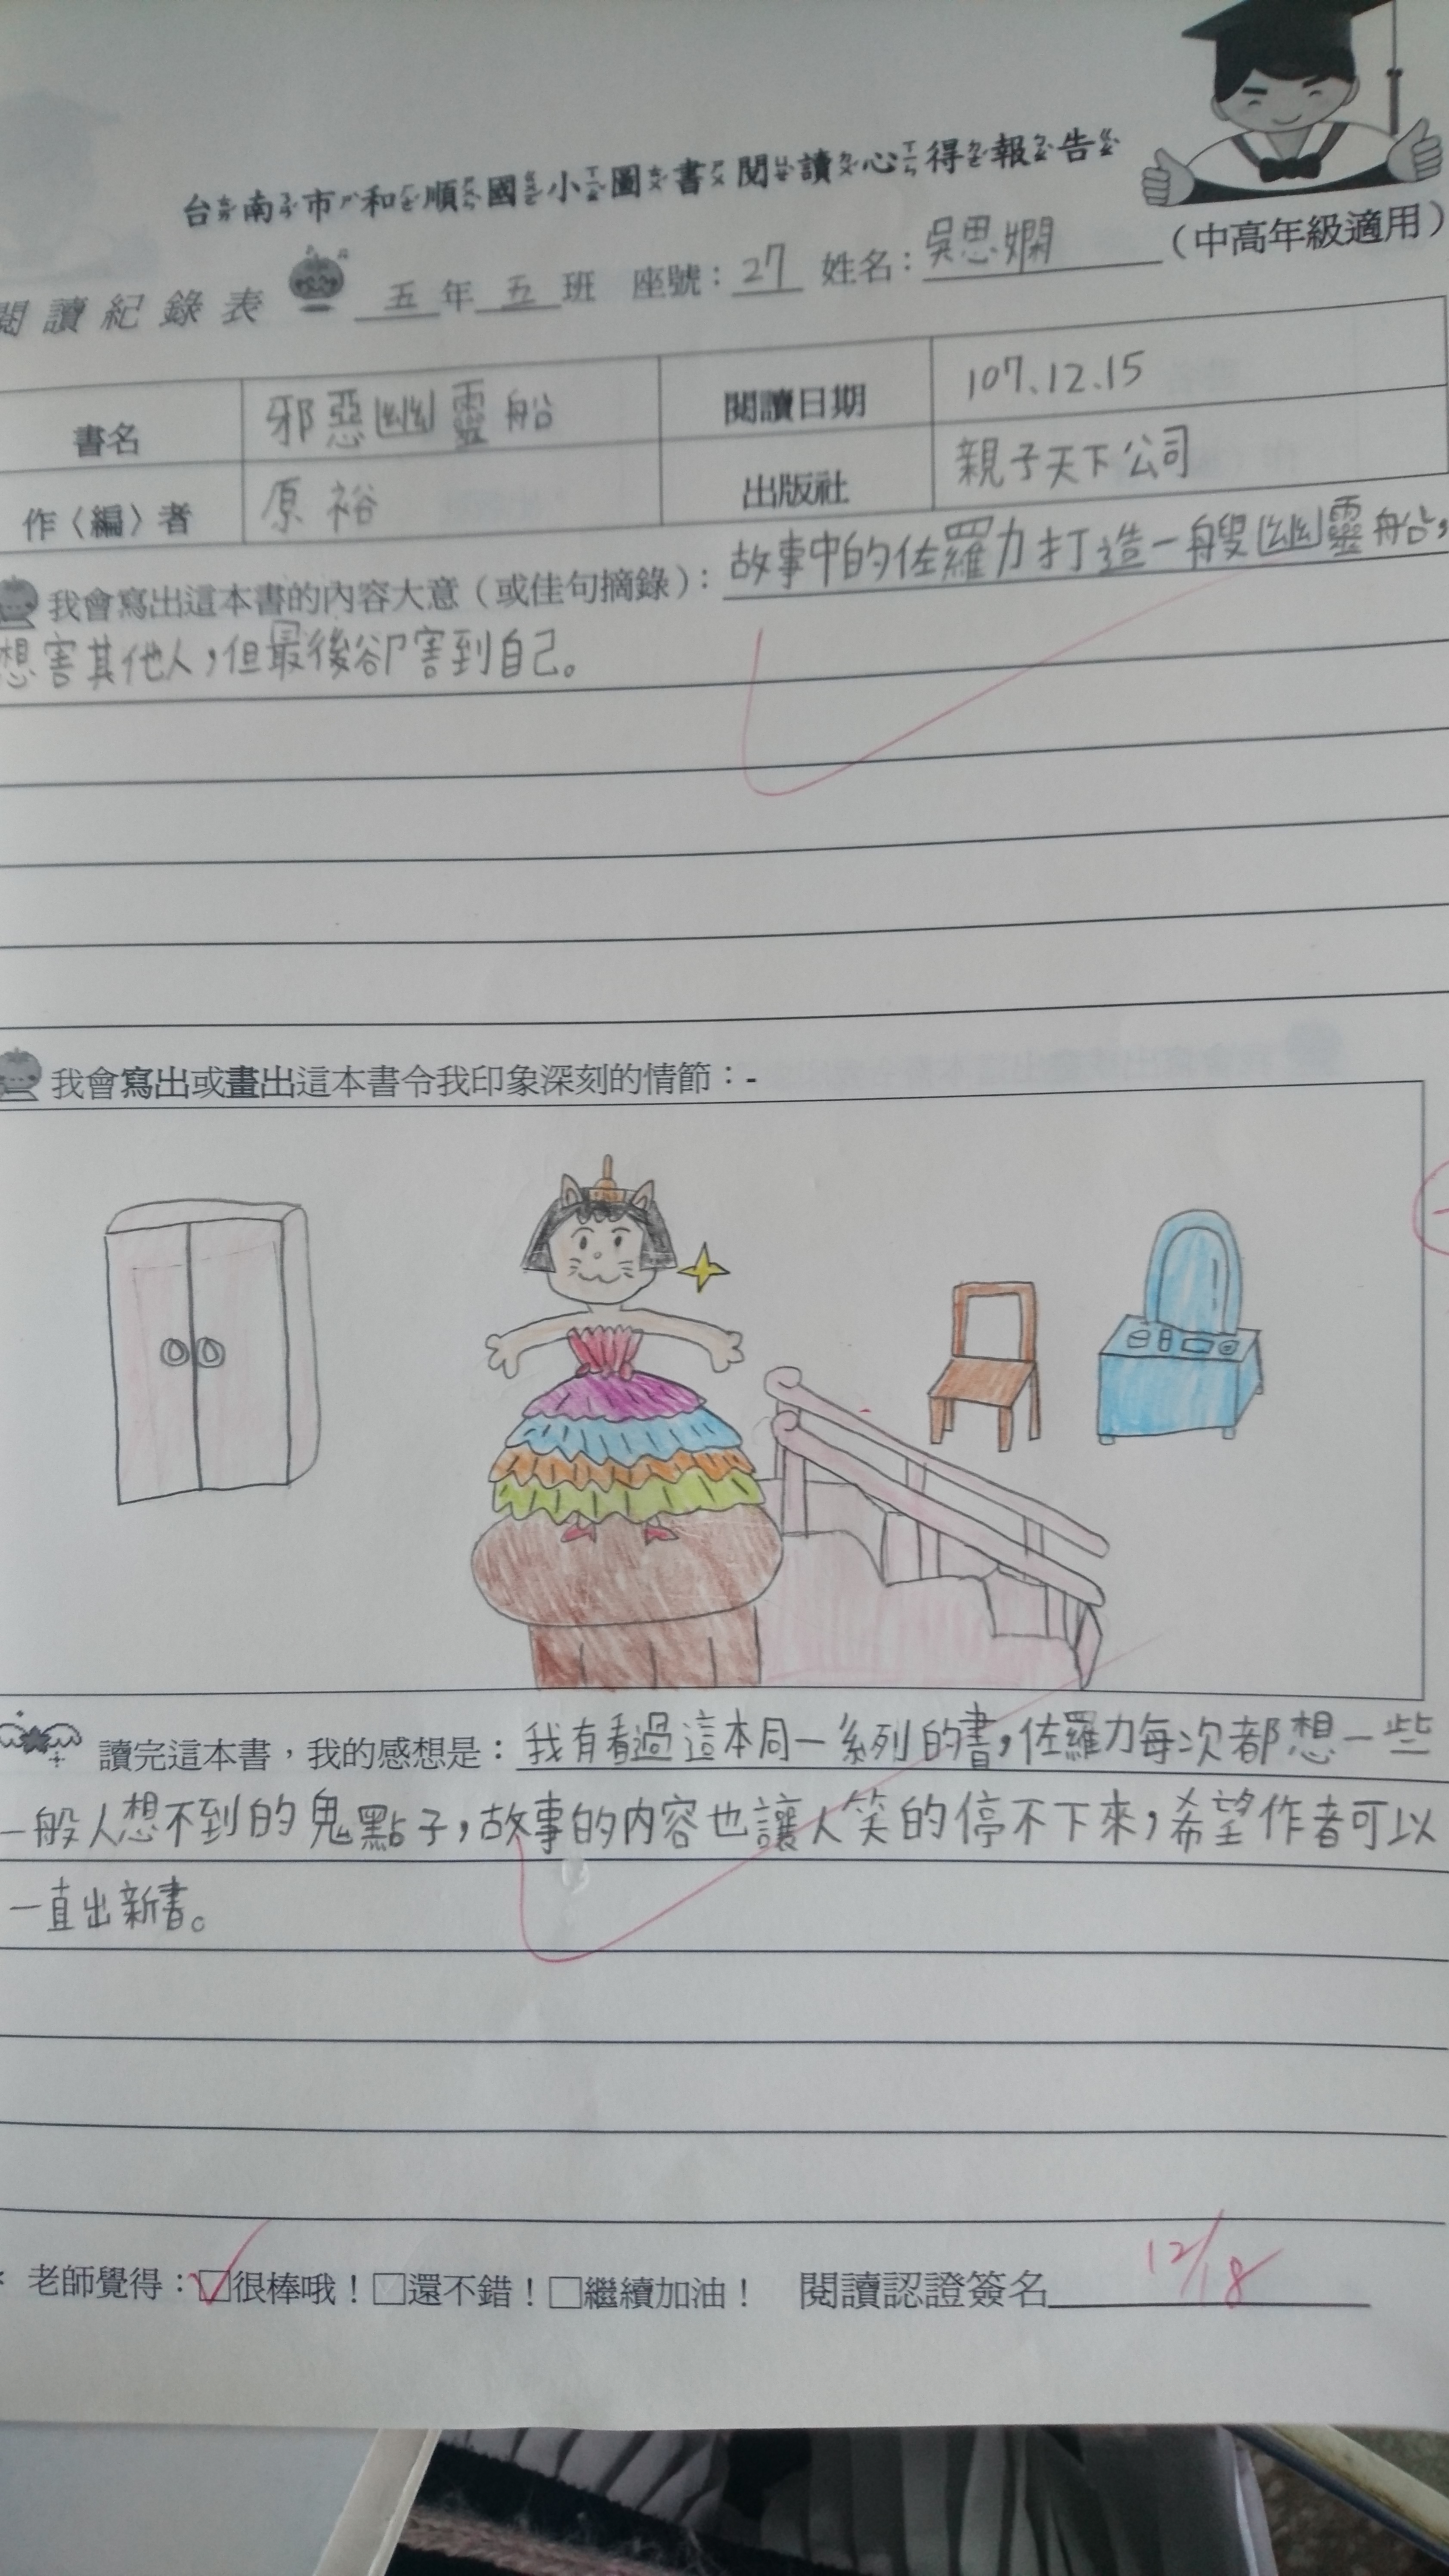 台南市和順國小圖書閱讀心得報告
(中高年級適用)
閱讀紀錄表 五年五班 座號：27 姓名：吳思嫻
書名 邪惡幽靈船 閱讀日期 107.12.15
作〈編〉者 原裕 出版社 親子天下公司
我會寫出這本書的內容大意（或佳句摘錄）：故事中的佐羅力打造一艘幽靈船，
想害其他人，但最後卻害到自己。
我會寫出或畫出這本書令我印象深刻的情節：-
讀完這本書，我的感想是：我有看過這本同一系列的書，佐羅力每次都想一些
一般人想不到的鬼點子，故事的內容也讓人笑的停不下來，希望作者可以
一直出新書。
老師覺得：□很棒哦！□還不錯！□繼續加油！ 閱讀認證簽名 12/18